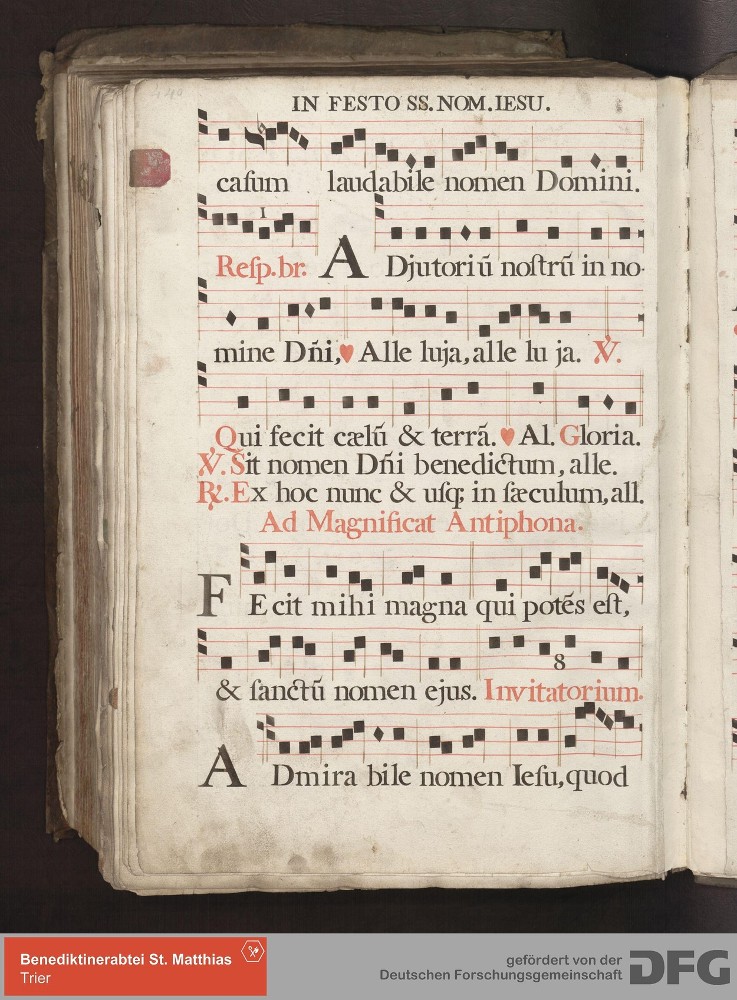 IN FESTO SS. NOM. IESU.
casum laudabile nomen Domini.
1
Resp. br. A Djutoriū nostrū in no-
mine Dñi, ♥ Alle luja, alle lu ja. ℣.
Qui fecit cælū & terrā. ♥ Al. Gloria.
℣. Sit nomen Dñi benedictum, alle.
℟. Ex hoc nunc & usq; in sæculum, all.
Ad Magnificat Antiphona.
F Ecit mihi magna qui potēs est,
8
& sanctū nomen ejus. Invitatorium.
A Dmira bile nomen Iesu, quod
Benediktinerabtei St. Matthias
Trier
gefördert von der
Deutschen Forschungsgemeinschaft
DFG